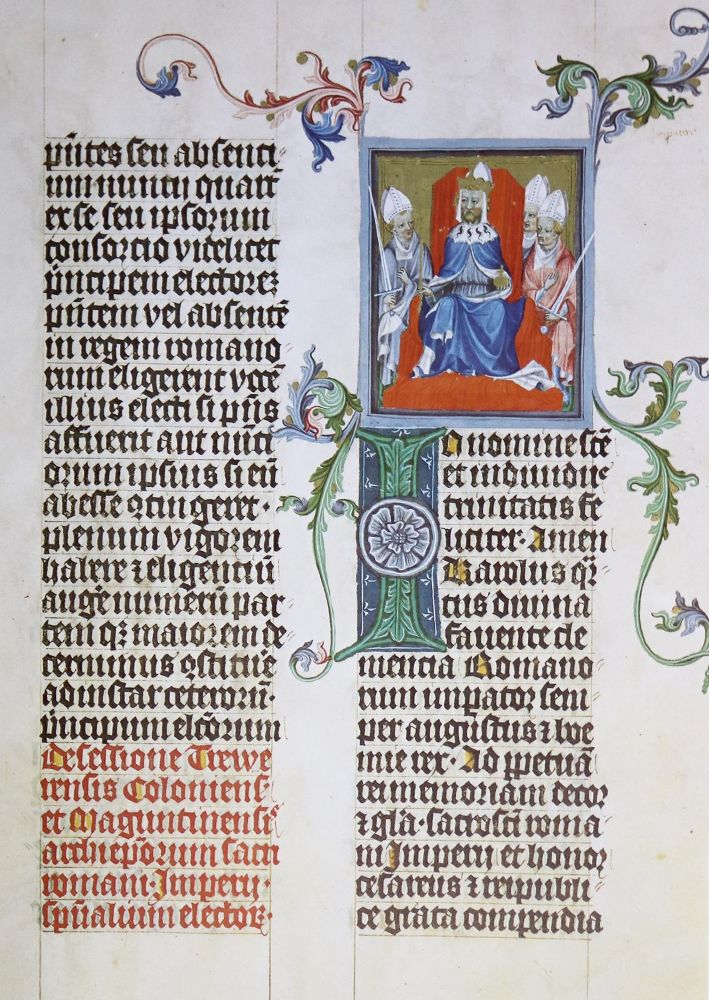 p̄ntes seu absenti
um nuntij quart
ex se seu ipsorum
consorcio videlicet
p̄ncipem electorez
p̄ntem vel absentē
in regem romano
rum eligerent vocē
illius electi si p̄ns
affuerit aut nūti
orum ipsius si eū
abesse ꝯtingeret·
plenum vigorem
habere ⁊ eligentiū
augere numerū par
tem qꝫ maiorem de
cernimus ꝯstituē
ad instar ceterorū
p̄ncipum elcōrum
De sessione Treve
rensis Coloniens̄
et Maguntinensis
archiep̄orum sacri
romani Imperij·
sp̄ualium elector·
In nomine scē
et indiuidue
trinitatis fe
liciter· Amen
Karolus qr̄
tus diuina
fauente cle
mencia Romano
rum imꝑator sem
per augustus ⁊ boe
mie rex· Ad ꝑpetuā
rei memoriam decor
⁊ gl̄a· sacrosc̄i roma
ni Imperij et honor
cesareus ⁊ reipubli
ce grata compendia